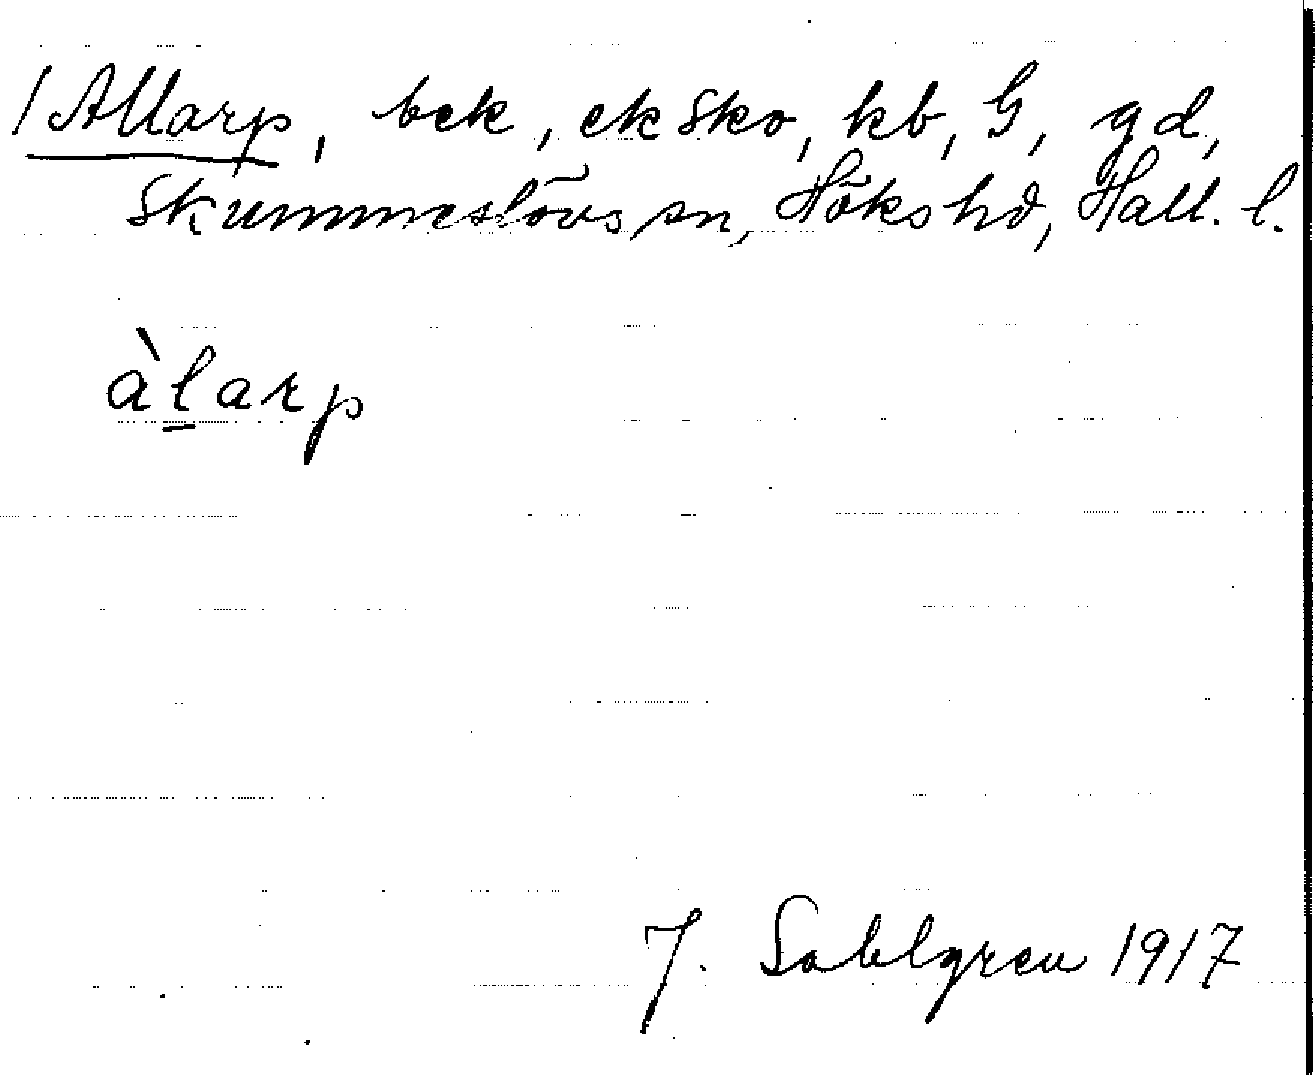 / Allarp, bck, ck sko, kb, G, gd,
Skummeslövs sn, Höks hd, Hall. l.
àl̲arp
J. Sahlgren 1917